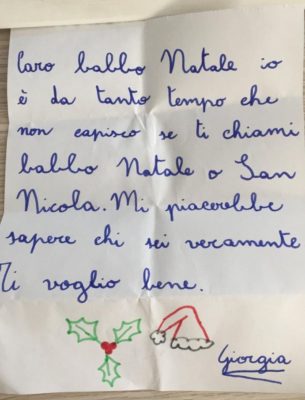 Caro babbo Natale io
è da tanto tempo che
non capisco se ti chiami
babbo Natale o San
Nicola. Mi piacerebbe
sapere chi sei veramente
Ti voglio bene.
Giorgia